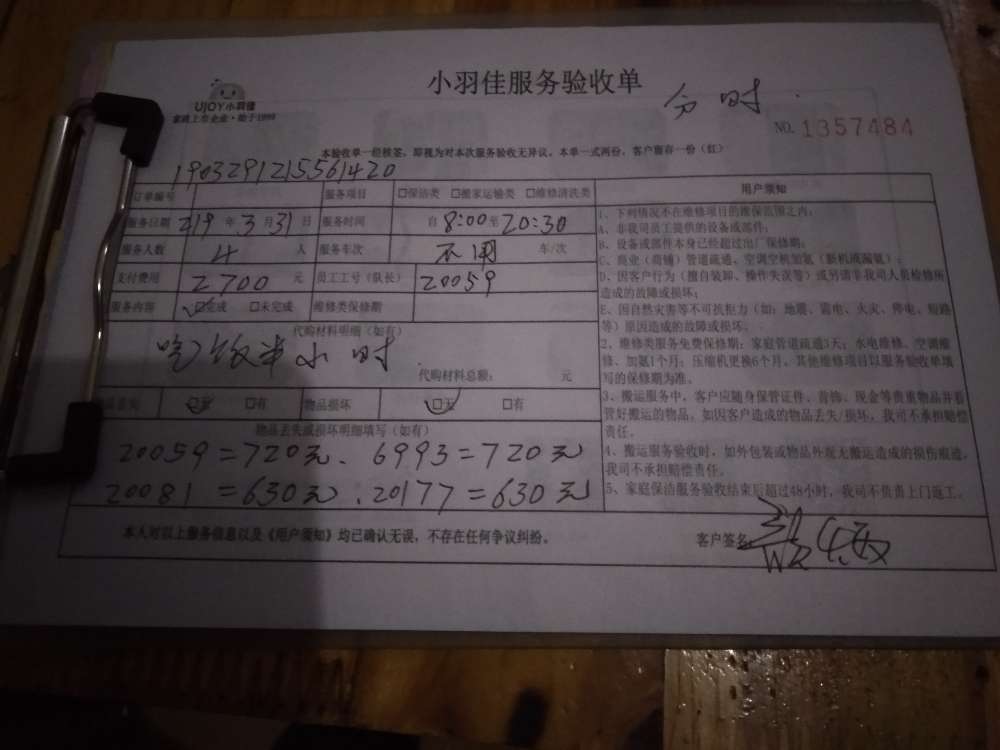 小羽佳服务验收单
分时
UJOY小羽佳
家政上市企业·始于1999
NO. 1357484
本验收单一经核签,即视为对本次服务验收无异议。本单一式两份,客户留存一份(红)
1903291215561420
订单编号 服务项目 □保洁类 □搬家运输类 □维修清洗类
服务日期 219 年 3 月 31 日 服务时间 自 8:00 至 20:30
服务人数 4 人 服务车次 不用 车/次
支付费用 2700 元 员工工号(队长) 20059
服务内容 □完成 □未完成 维修类保修期
代购材料明细(如有)
吃饭半小时
代购材料总额: 元
□无 □有 物品损坏 □无 □有
物品丢失或损坏明细填写(如有)
20059=720元、6993=720元
20081=630元、20177=630元
用户须知
1、下列情况不在维修项目的维保范围之内:
A、非我司员工提供的设备或部件;
B、设备或部件本身已经超过出厂保修期;
C、商业(商铺)管道疏通、空调空机加氨(新机或漏氨);
D、因客户行为(擅自装卸、操作失误等)或另请非我司人员检修所
造成的故障或损坏;
E、因自然灾害等不可抗拒力(如:地震、雷电、火灾、停电、短路
等)原因造成的故障或损坏。
2、维修类服务免费保修期:家庭管道疏通3天;水电维修、空调维
修、加氨1个月;压缩机更换6个月。其他维修项目以服务验收单填
写的保修期为准。
3、搬运服务中,客户应随身保管证件、首饰、现金等贵重物品并看
管好搬运的物品,如因客户造成的物品丢失/损坏,我司不承担赔偿
责任。
4、搬运服务验收时,如外包装或物品外观无搬运造成的损伤痕迹,
我司不承担赔偿责任。
5、家庭保洁服务验收结束后超过48小时,我司不负责上门返工。
本人对以上服务信息以及《用户须知》均已确认无误,不存在任何争议纠纷。
客户签名: